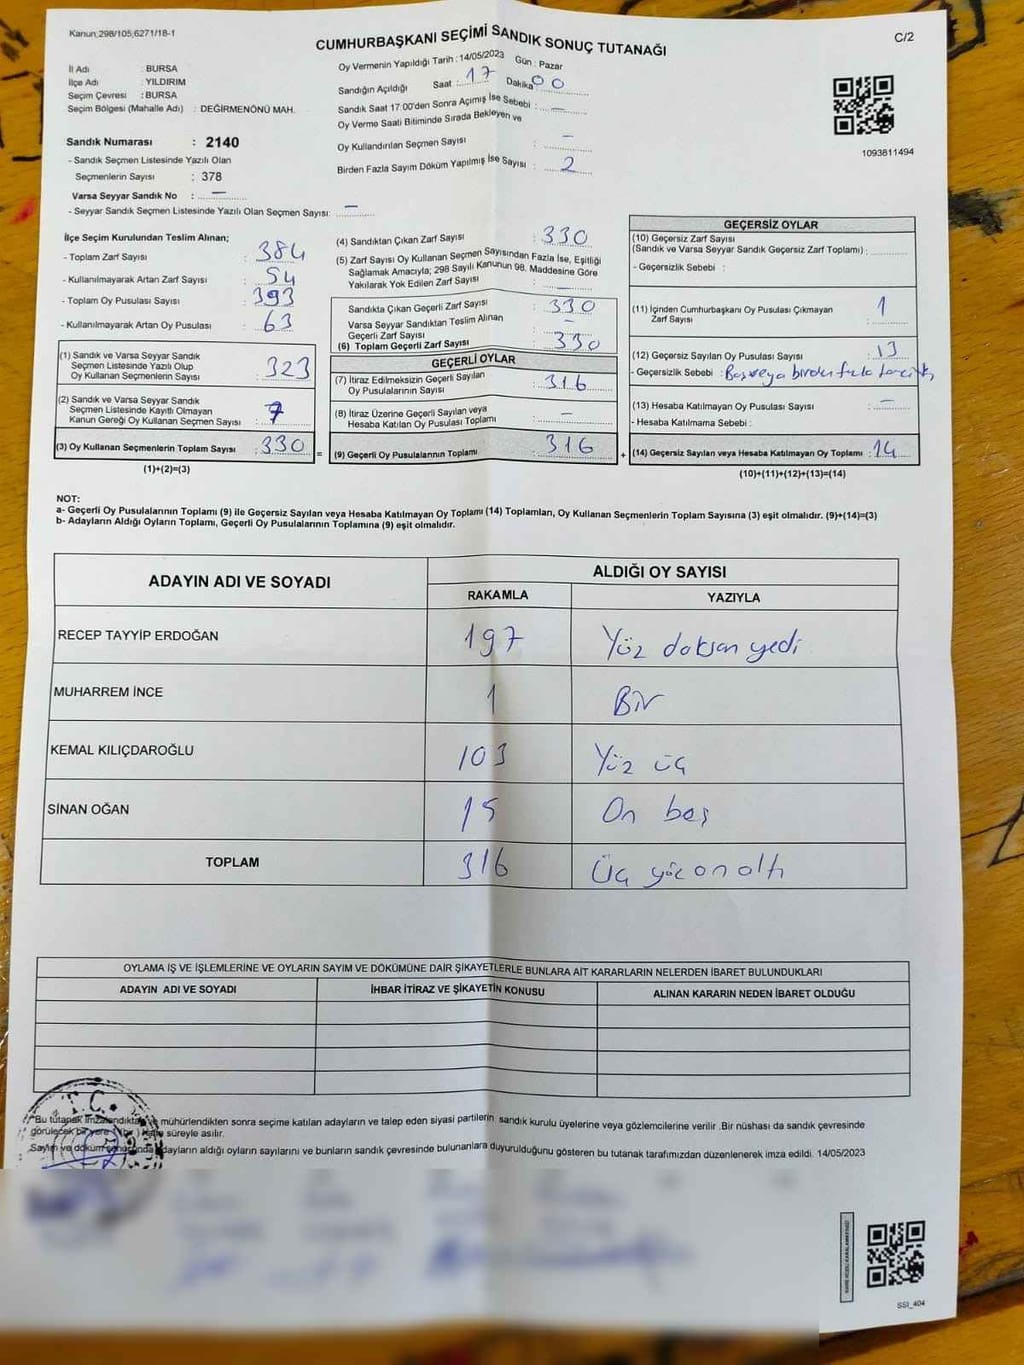 Kanun;298/105;6271/18-1
CUMHURBAŞKANI SEÇİMİ SANDIK SONUÇ TUTANAĞI
C/2
İl Adı : BURSA
İlçe Adı : YILDIRIM
Seçim Çevresi : BURSA
Seçim Bölgesi (Mahalle Adı) : DEĞİRMENÖNÜ MAH.
Sandık Numarası : 2140
- Sandık Seçmen Listesinde Yazılı Olan
Seçmenlerin Sayısı : 378
Varsa Seyyar Sandık No : —
- Seyyar Sandık Seçmen Listesinde Yazılı Olan Seçmen Sayısı: —
Oy Vermenin Yapıldığı Tarih : 14/05/2023 Gün : Pazar
Sandığın Açıldığı Saat : 17 Dakika 00
Sandık Saat 17:00'den Sonra Açımış İse Sebebi : —
Oy Verme Saati Bitiminde Sırada Bekleyen ve
Oy Kullandırılan Seçmen Sayısı : —
Birden Fazla Sayım Döküm Yapılmış İse Sayısı : 2
1093811494
İlçe Seçim Kurulundan Teslim Alınan;
- Toplam Zarf Sayısı : 384
- Kullanılmayarak Artan Zarf Sayısı : 54
- Toplam Oy Pusulası Sayısı : 393
- Kullanılmayarak Artan Oy Pusulası : 63
(1) Sandık ve Varsa Seyyar Sandık
Seçmen Listesinde Yazılı Olup
Oy Kullanan Seçmenlerin Sayısı : 323
(2) Sandık ve Varsa Seyyar Sandık
Seçmen Listesinde Kayıtlı Olmayan
Kanun Gereği Oy Kullanan Seçmen Sayısı : 7
(3) Oy Kullanan Seçmenlerin Toplam Sayısı : 330 =
(1)+(2)=(3)
(4) Sandıktan Çıkan Zarf Sayısı : 330
(5) Zarf Sayısı Oy Kullanan Seçmen Sayısından Fazla İse, Eşitliği
Sağlamak Amacıyla; 298 Sayılı Kanunun 98. Maddesine Göre
Yakılarak Yok Edilen Zarf Sayısı : —
Sandıkta Çıkan Geçerli Zarf Sayısı : 330
Varsa Seyyar Sandıktan Teslim Alınan
Geçerli Zarf Sayısı : —
(6) Toplam Geçerli Zarf Sayısı : 330
GEÇERLİ OYLAR
(7) İtiraz Edilmeksizin Geçerli Sayılan
Oy Pusulasının Sayısı : 316
(8) İtiraz Üzerine Geçerli Sayılan veya
Hesaba Katılan Oy Pusulası Toplamı : —
(9) Geçerli Oy Pusulalarının Toplamı : 316 +
GEÇERSİZ OYLAR
(10) Geçersiz Zarf Sayısı
(Sandık ve Varsa Seyyar Sandık Geçersiz Zarf Toplamı) :
- Geçersizlik Sebebi :
(11) İçinden Cumhurbaşkanı Oy Pusulası Çıkmayan
Zarf Sayısı : 1
(12) Geçersiz Sayılan Oy Pusulası Sayısı : 13
- Geçersizlik Sebebi : Boş veya birden fazla tercih
(13) Hesaba Katılmayan Oy Pusulası Sayısı : —
- Hesaba Katılmama Sebebi :
(14) Geçersiz Sayılan veya Hesaba Katılmayan Oy Toplamı : 14
(10)+(11)+(12)+(13)=(14)
NOT:
a- Geçerli Oy Pusulalarının Toplamı (9) ile Geçersiz Sayılan veya Hesaba Katılmayan Oy Toplamı (14) Toplamları, Oy Kullanan Seçmenlerin Toplam Sayısına (3) eşit olmalıdır. (9)+(14)=(3)
b- Adayların Aldığı Oyların Toplamı, Geçerli Oy Pusulalarının Toplamına (9) eşit olmalıdır.
ADAYIN ADI VE SOYADI ALDIĞI OY SAYISI
RAKAMLA YAZIYLA
RECEP TAYYİP ERDOĞAN 197 Yüz doksan yedi
MUHARREM İNCE 1 Bir
KEMAL KILIÇDAROĞLU 103 Yüz üç
SİNAN OĞAN 15 On beş
TOPLAM 316 Üç yüz on altı
OYLAMA İŞ VE İŞLEMLERİNE VE OYLARIN SAYIM VE DÖKÜMÜNE DAİR ŞİKAYETLERLE BUNLARA AİT KARARLARIN NELERDEN İBARET BULUNDUKLARI
ADAYIN ADI VE SOYADI İHBAR İTİRAZ VE ŞİKAYETİN KONUSU ALINAN KARARIN NEDEN İBARET OLDUĞU
T.C.
"Bu tutanak imzalandıktan mühürlendikten sonra seçime katılan adayların ve talep eden siyasi partilerin sandık kurulu üyelerine veya gözlemcilerine verilir .Bir nüshası da sandık çevresinde
görülecek bir yere süreyle asılır.
Sayım ve döküm adayların aldığı oyların sayılarını ve bunların sandık çevresinde bulunanlara duyurulduğunu gösteren bu tutanak tarafımızdan düzenlenerek imza edildi. 14/05/2023
SSI_404